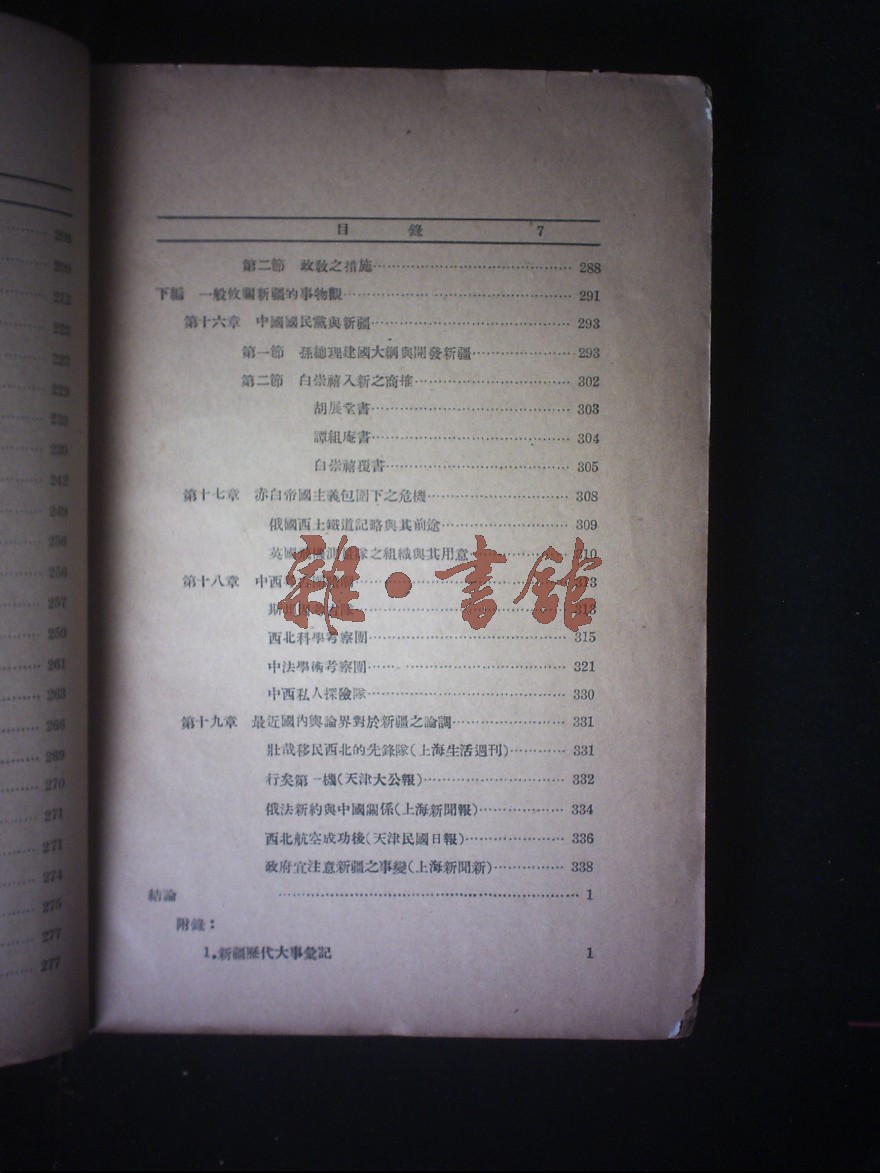 目錄 7
第二節 政敎之措施 288
下編 一般攸關新疆的事物觀 291
第十六章 中國國民黨與新疆 293
第一節 孫總理建國大綱與開發新疆 293
第二節 白崇禧入新之商榷 302
胡展堂書 303
譚組庵書 304
白崇禧覆書 305
第十七章 赤白帝國主義包圍下之危機 308
俄國西土鐵道記略與其前途 309
英國 隊之組織與其用意 310
第十八章 中西 313
斯 隊 313
西北科學考察團 315
中法學術考察團 321
中西私人探險隊 330
第十九章 最近國內輿論界對於新疆之論調 331
壯哉移民西北的先鋒隊(上海生活週刊) 331
行矣第一機(天津大公報) 332
俄法新約與中國關係(上海新聞報) 334
西北航空成功後(天津民國日報) 336
政府宜注意新疆之事變(上海新聞新) 338
結論 1
附錄：
1.新疆歷代大事彙記 1
雜·書館
209
213
223
223
229
230
230
242
249
256
256
257
250
261
263
266
269
270
271
271
274
275
277
277